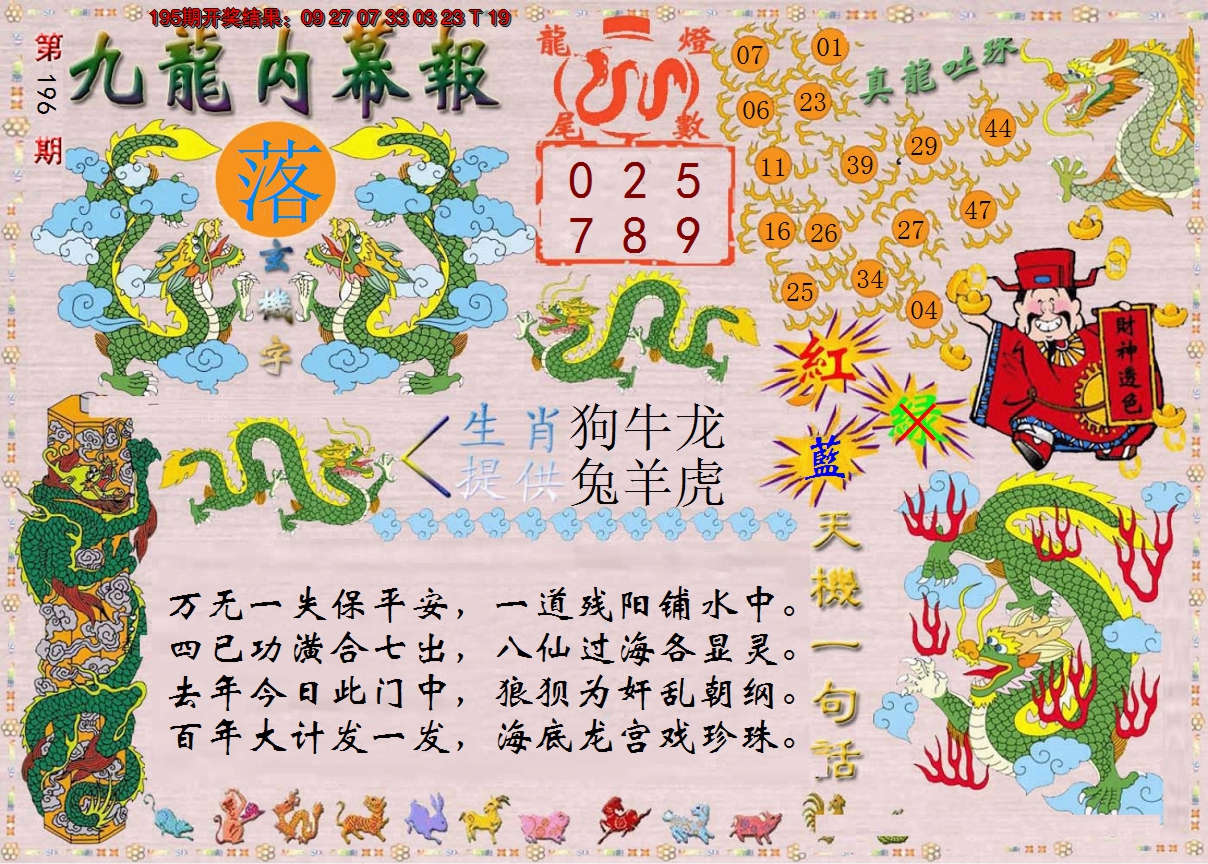 195期开奖结果：09 27 07 33 03 23 T 19
第196期
九龍内幕報
落
玄機字
龍燈
尾數
0 2 5
7 8 9
真龍吐珠
07 01
06 23
11 39 29 44
16 26 27 47
25 34 04
財神透色
紅
绿
藍
生肖 狗牛龙
提供 兔羊虎
天機一句話
万无一失保平安，一道残阳铺水中。
四已功潢合七出，八仙过海各显灵。
去年今日此门中，狼狈为奸乱朝纲。
百年大计发一发，海底龙宫戏珍珠。